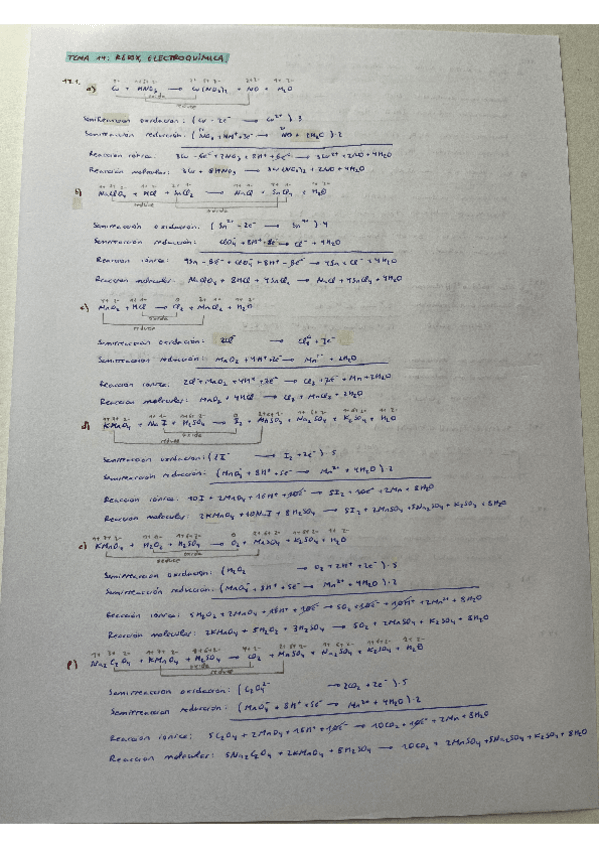 TEMA 14: REDOX, ELECTROQUÍMICA
14.1. a) Cu + HNO3 → Cu(NO3)2 + NO + H2O
oxida
reduce
Semirreacción oxidación: (Cu - 2e⁻ → Cu²⁺)·3
Semirreacción reducción: (NO3 + 4H⁺ + 3e⁻ → NO + 2H2O)·2
Reacción iónica: 3Cu - 6e⁻ + 2NO3 + 8H⁺ + 6e⁻ → 3Cu²⁺ + 2NO + 4H2O
Reacción molecular: 3Cu + 8HNO3 → 3Cu(NO3)2 + 2NO + 4H2O
b) NaClO4 + HCl + SnCl2 → NaCl + SnCl4 + H2O
reduce
oxida
Semirreacción oxidación: (Sn²⁺ - 2e⁻ → Sn⁴⁺)·4
Semirreacción reducción: ClO4⁻ + 8H⁺ - 8e → Cl⁻ + 4H2O
Reacción iónica: 4Sn - 8e⁻ + ClO4⁻ + 8H⁺ - 8e⁻ → 4Sn + Cl⁻ + 4H2O
Reacción molecular: NaClO4 + 8HCl + 4SnCl2 → NaCl + 4SnCl4 + 4H2O
c) MnO2 + HCl → Cl2 + MnCl2 + H2O
oxida
reduce
Semirreacción oxidación: 2Cl⁻ → Cl2 + 2e⁻
Semirreacción reducción: MnO2 + 4H⁺ + 2e⁻ → Mn²⁺ + 2H2O
Reacción iónica: 2Cl⁻ + MnO2 + 4H⁺ + 2e⁻ → Cl2 + 2e⁻ + Mn + 2H2O
Reacción molecular: MnO2 + 4HCl → Cl2 + MnCl2 + 2H2O
d) KMnO4 + NaI + H2SO4 → I2 + MnSO4 + Na2SO4 + K2SO4 + H2O
oxida
reduce
Semirreacción oxidación: (2I⁻ → I2 + 2e⁻)·5
Semirreacción reducción: (MnO4⁻ + 8H⁺ + 5e⁻ → Mn²⁺ + 4H2O)·2
Reacción iónica: 10I + 2MnO4 + 16H⁺ + 10e⁻ → 5I2 + 10e⁻ + 2Mn + 8H2O
Reacción molecular: 2KMnO4 + 10NaI + 8H2SO4 → 5I2 + 2MnSO4 + 5Na2SO4 + K2SO4 + 8H2O
e) KMnO4 + H2O2 + H2SO4 → O2 + MnSO4 + K2SO4 + H2O
oxida
reduce
Semirreacción oxidación: (H2O2 → O2 + 2H⁺ + 2e⁻)·5
Semirreacción reducción: (MnO4⁻ + 8H⁺ + 5e⁻ → Mn²⁺ + 4H2O)·2
Reacción iónica: 5H2O2 + 2MnO4 + 16H⁺ + 10e⁻ → 5O2 + 10e⁻ + 10H⁺ + 2Mn²⁺ + 8H2O
Reacción molecular: 2KMnO4 + 5H2O2 + 3H2SO4 → 5O2 + 2MnSO4 + K2SO4 + 8H2O
f) Na2C2O4 + KMnO4 + H2SO4 → CO2 + MnSO4 + Na2SO4 + K2SO4 + H2O
oxida
reduce
Semirreacción oxidación: (C2O4²⁻ → 2CO2 + 2e⁻)·5
Semirreacción reducción: (MnO4⁻ + 8H⁺ + 5e⁻ → Mn²⁺ + 4H2O)·2
Reacción iónica: 5C2O4 + 2MnO4 + 16H⁺ + 10e⁻ → 10CO2 + 10e⁻ + 2Mn + 8H2O
Reacción molecular: 5Na2C2O4 + 2KMnO4 + 8H2SO4 → 10CO2 + 2MnSO4 + 5Na2SO4 + K2SO4 + 8H2O